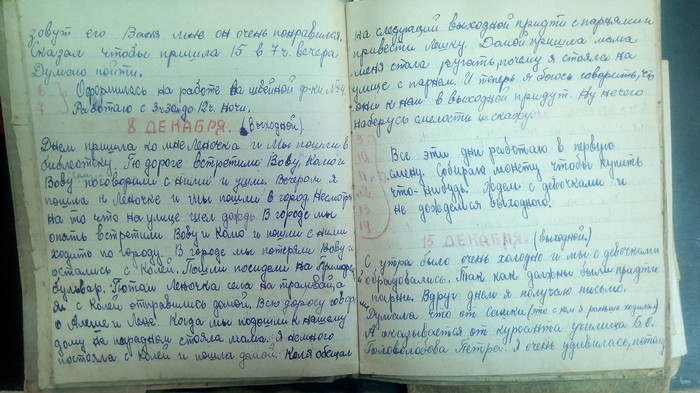 зовут его Вася мне он очень понравился.
Сказал чтобы пришла 15 в 7ч. вечера
Думаю пойти.
6 Оформилась на работе на швейной ф-ки №4
7 Работаю с 3х час до 12ч. ночи.
8 ДЕКАБРЯ. (выходной).
Днем пришла ко мне Леночка и мы пошли в
библиотеку. По дороге встретили Вову, Колю и
Вову поговорили с ними и ушли. Вечером я
пошла к Леночке и мы пошли в город Несмотря
на то что на улице шел дождь. В городе мы
опять встретили Вову и Колю и пошли с ними
ходить по городу. В городе мы потеряли Вову и
остались с Колей. Пошли посидели на Примор.
бульвар. Потом Леночка села на трамвай, а
я с Колей отправились домой. Всю дорогу говор.
о Алеше и Лене. Когда мы подошли к нашему
дому на парадном стояла мама. Я немного
постояла с Колей и пошла домой. Коля обещал
на следующий выходной придти с парнями и
привести Лешку. Домой пришла мама
меня стала ругать, почему я стояла на
улице с парнем. И теперь я боюсь говорить, что
они к нам в выходной придут. Ну нечего
наберусь смелости и скажу.
9
10
11
12
13
14
Все эти дни работаю в первую
смену. Собираю монету чтобы купить
что-нибудь. Ждем с девочками и
не дождемся выходного.
15 ДЕКАБРЯ. (выходной.)
С утра было очень холодно и мы с девочками
обрадовались. Так как должны были придти
парни. Вдруг днем я получаю письмо.
Думала что от Сашки (что с ним я раньше ходила)
А оказывается от курсанта училища Б.О.
Головолобова Петрей. Я очень удивилась, потому